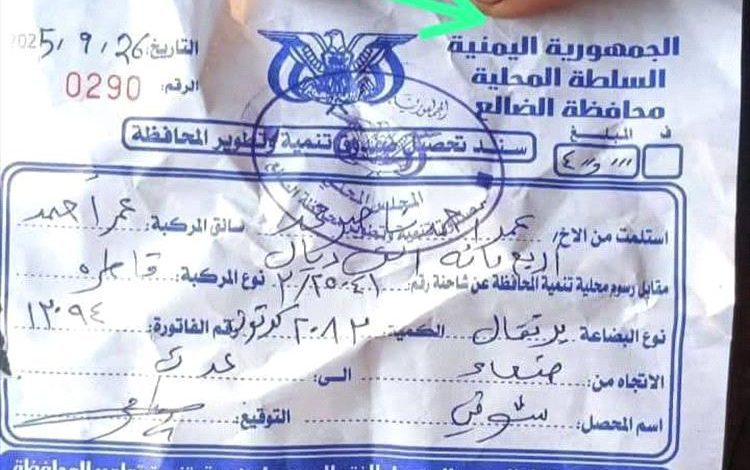 الجمهورية اليمنية
السلطة المحلية
محافظة الضالع
التاريخ: 2025/9/26
الرقم: 0290
سند تحصيل صندوق تنمية وتطوير المحافظة
المبلغ ف
استلمت من الاخ/ عمر احمد سائق المركبة: عمر أحمد
اربعمائة الف ريال
مقابل رسوم محلية تنمية المحافظة عن شاحنة رقم: نوع المركبة: قاطره
نوع البضاعة برتقال الكمية: ٢٠٨٢ كرتون رقم الفاتورة: ١٢٠٩٤
الاتجاه من: صنعاء الى: عدن
اسم المحصل: شوقي التوقيع: